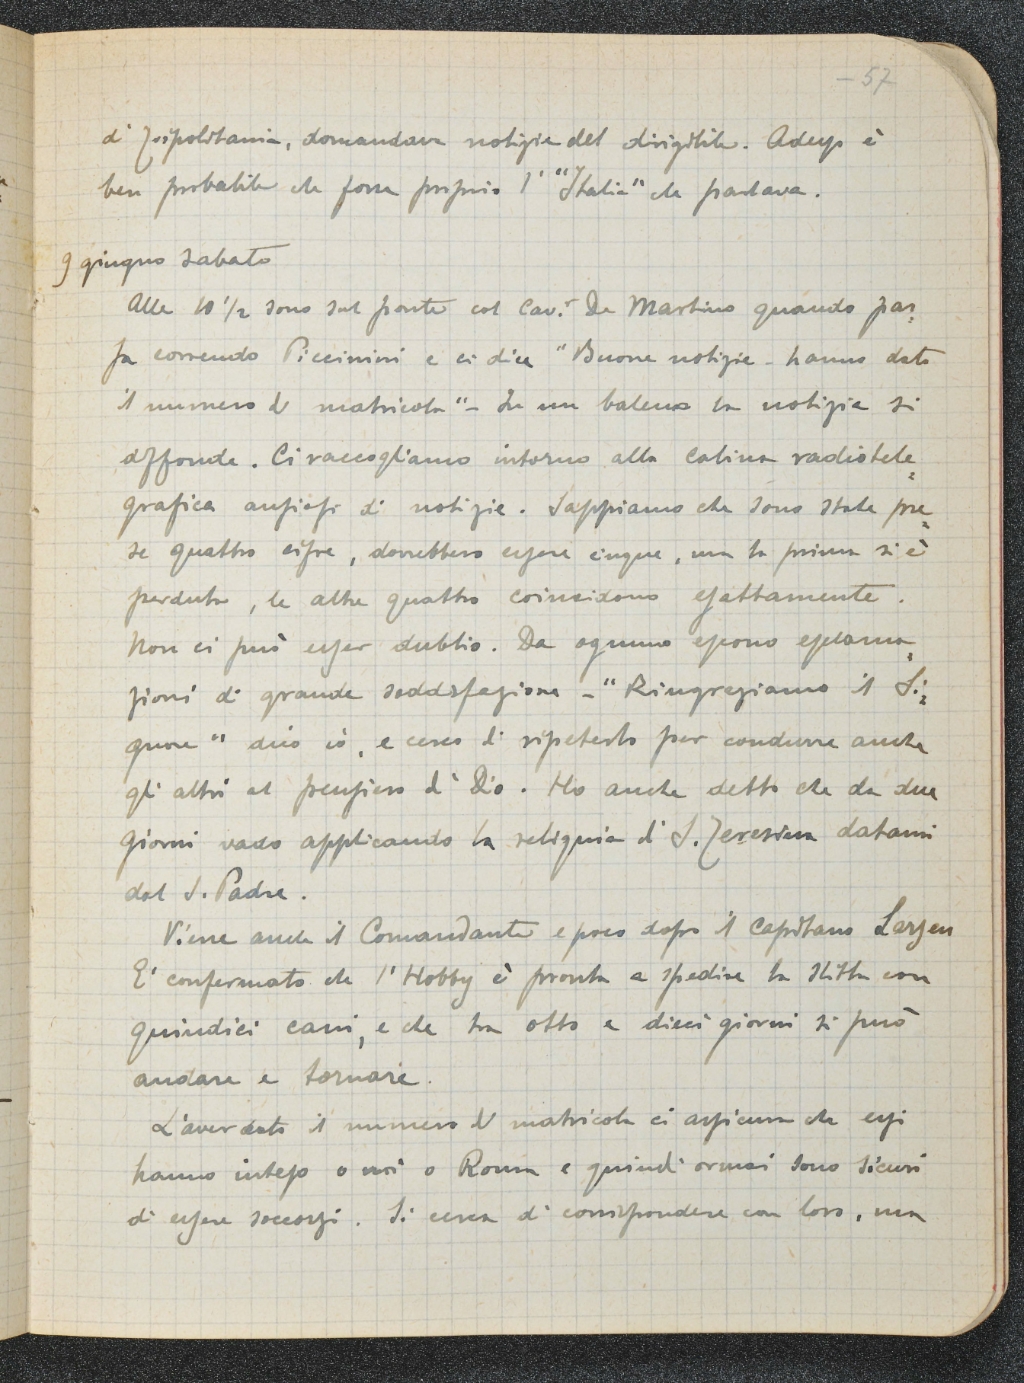 - 57
di Tripolitania, domandava notizie del dirigibile. Adesso è
ben probabile che fosse proprio l' "Italia" che parlava.
9 giugno sabato
Alle 10 ½ sono sul ponte col Cav.r De Martino quando pas=
sa correndo Piccinini e ci dice "Buone notizie - hanno dato
il numero di matricola" - In un baleno la notizia si
diffonde. Ci raccogliamo intorno alla cabina radiotele=
grafica ansiosi di notizie. Sappiamo che sono state pre=
se quattro cifre, dovrebbero essere cinque, ma la prima si è
perduta, le altre quattro coincidono esattamente.
Non ci può esser dubbio. Da ognuno escono esclama=
zioni di grande soddisfazione - "Ringraziamo il Si=
gnore" dico io, e cerco di ripeterlo per condurre anche
gli altri al pensiero di Dio. Ho anche detto che da due
giorni vado applicando la reliquia di S. Teresina datami
dal S. Padre.
Viene anche il Comandante e poco dopo il capitano Larsen
E' confermato che l'Hobby è pronta a spedire la slitta con
quindici cani, e che tra otto e dieci giorni si può
andare e tornare.
L'aver dato il numero di matricola ci assicura che essi
hanno inteso o noi o Roma e quindi ormai sono sicuri
di essere soccorsi. Si cerca di corrispondere con loro, ma